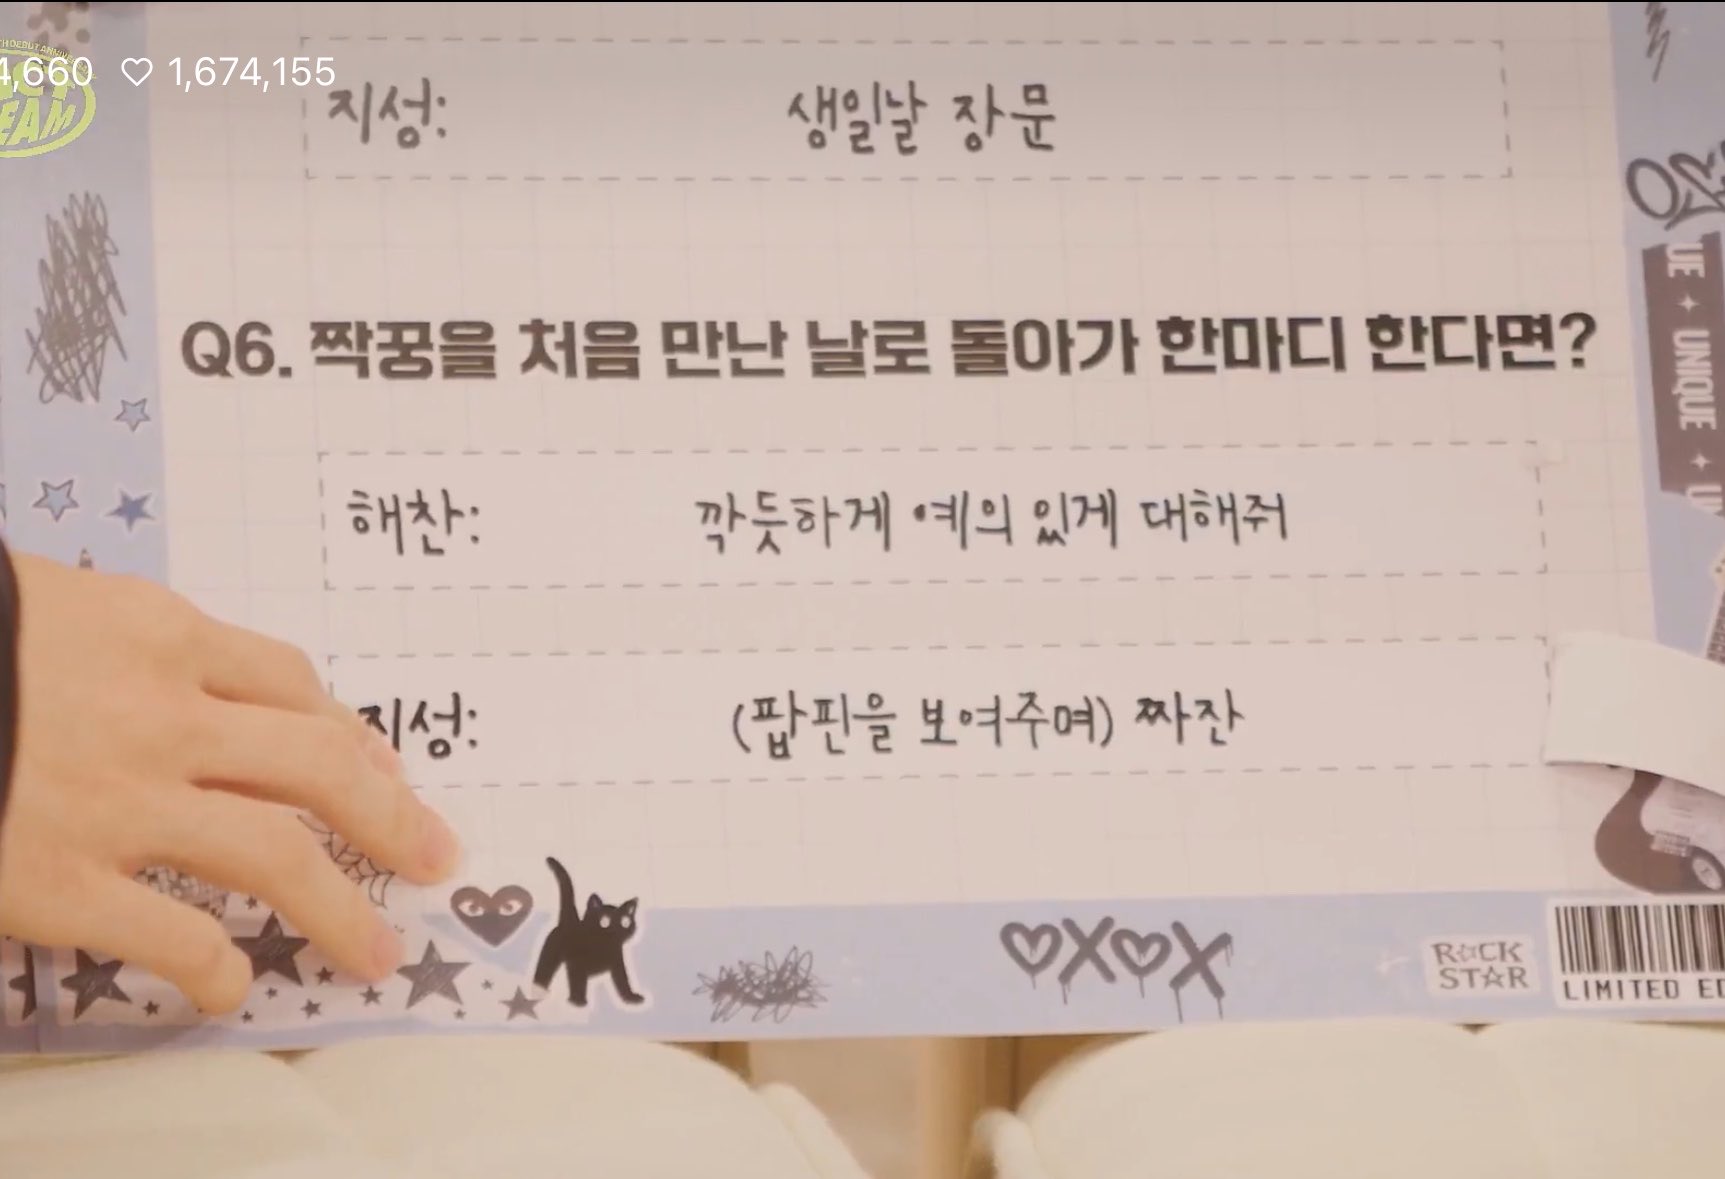 4,660 ♡ 1,674,155
지성: 생일날 장문
Q6. 짝꿍을 처음 만난 날로 돌아가 한마디 한다면?
해찬: 깍듯하게 예의 있게 대해줘
지성: (팝핀을 보여주며) 짜잔
UE ✦ UNIQUE ✦ U
OXOX
ROCK
STAR
LIMITED ED